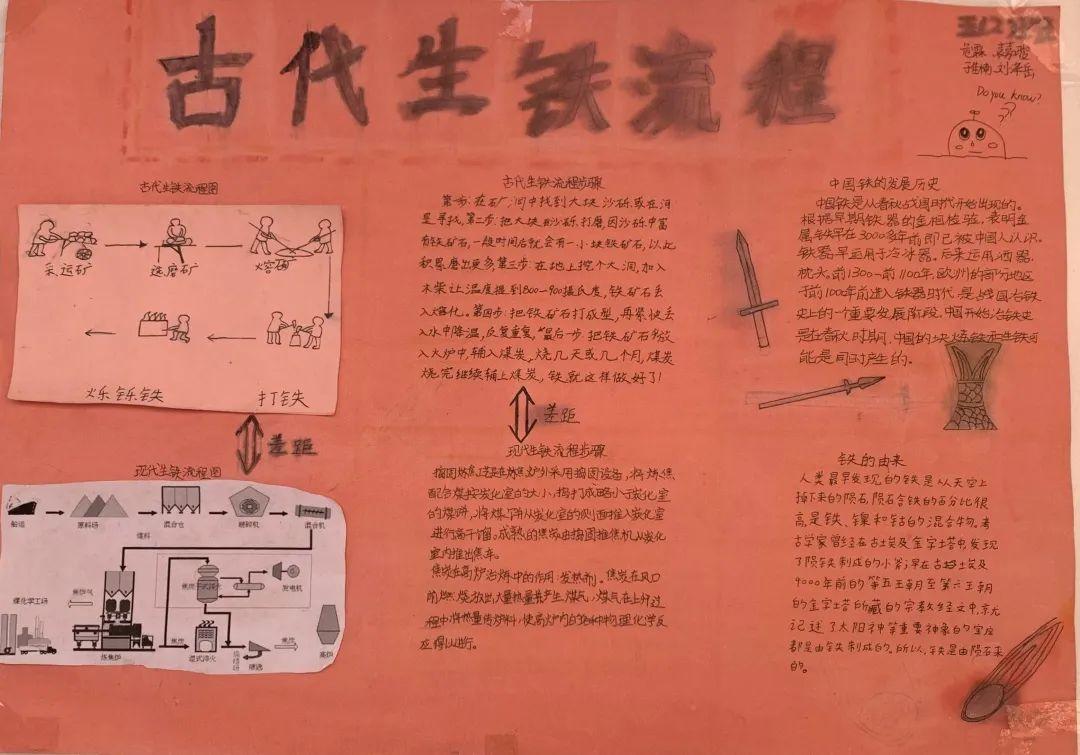 古代生铁流程
Do you know?
古代生铁流程图
采运矿
选磨矿
打铁
差距
现代生铁流程图
船运
原料场
混合仓
破碎机
混合机
煤料
焦炉气
煤化学工场
炼焦炉
焦炭
干式淬火
发电机
焦炭
湿式淬火
筛选
焦炭
高炉
古代生铁流程步骤
第一步:在矿洞中找到大块沙砾或在河
里寻找,第二步:把大块的沙砾打磨,因沙砾中富
有铁矿石,一段时间后就会有一小块铁矿石,以此
积累磨出更多第三步:在地上挖个大洞,加入
木柴让温度提到800-900摄氏度,铁矿石丢
入熔化。第四步:把铁矿石打成型,再紧快丢
入水中降温,反复重复,最后一步:把铁矿石放
入火炉中,辅入煤炭,烧几天或几个月,煤炭
烧完继续辅上煤炭,铁就这样做好了!
差距
现代生铁流程步骤
捣固炼焦工艺是在炼焦炉外采用捣固设备,将炼焦
配合煤按炭化室的大小,捣打成略小于炭化室
的煤饼,将煤饼从炭化室的侧面推入炭化室
进行高干馏。成熟的焦炭由捣固推焦机从炭化
室内推出焦车。
焦炭在高炉冶炼中的作用:发热剂。焦炭在风口
前燃烧放出大量热量并产生煤气,煤气在上升过
程中将热量传给炉料,使高炉内的各种物理化学反
应得以进行。
中国铁的发展历史
中国铁是从春秋战国时代开始出现的。
根据早期铁器的金相检验,表明金
属铁早在3000多年前即已被中国人认识。
铁器早运用于冷冰器。后来运用酒器,
枕头。前1300—前1100年,欧洲的部分地区
于前1100年前进入铁器时代,是战国冶铁
史上的一个重要发展阶段。中国开始冶铁史
是在春秋时期,中国的块炼铁和生铁可
能是同时产生的。
铁的由来
人类最早发现的铁是从天空上
掉下来的陨石,陨石含铁的百分比很
高,是铁、镍和钴的混合物。考
古学家曾经在古埃及金字塔中,发现
了陨铁制成的小斧;早在古埃及
4000年前的第五王朝至第六王朝
的金字塔所藏的宗教经文中,就
记述了太阳神等重要神象的宝座
都是由铁制成的。所以,铁是由陨石来
的。